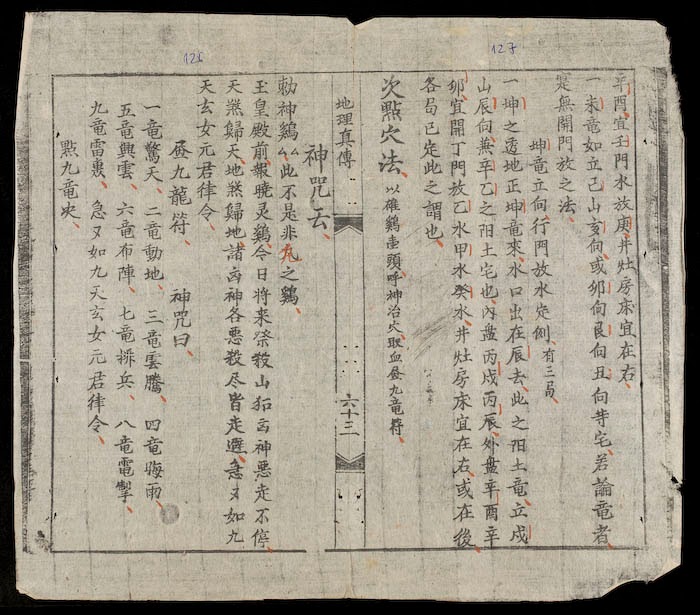 127
辛酉、宜壬門水放庚、井灶房床宜在右、
一未竜如立己山亥向、或卯向艮向丑向等宅、若論竜者
是無開門放之法、
坤竜立向行門放水定例、有三局、
一坤之透地正坤竜來、水口出在辰去、此之阳土竜、立戍
山辰向兼辛乙之阳土宅也、內盘丙戍丙辰、外盘辛酉辛
卯、宜開丁門放乙水甲水癸水、井灶房床宜在右、或在後
各局已定此之謂也、
次點穴法、以雄鷄 頭呼神治穴取血 九竜符、
地理真傳
六十三
126
神咒云、
勅神鷄〻此不是非凡之鷄、
玉皇殿前報曉灵鷄、今日将来 殺山 神悪走不停、
天煞歸天、地煞歸地諸 神各悪殺尽皆走避、急 如九
天玄女元君律令、
九龍符、 神咒曰、
一竜驚天、 二竜動地、 三竜雲騰、 四竜晦雨、
五竜興雲、 六竜布陣、 七竜 兵、 八竜電掣、
九竜雷 、 急 如九天玄女元君律令、
點九竜 、